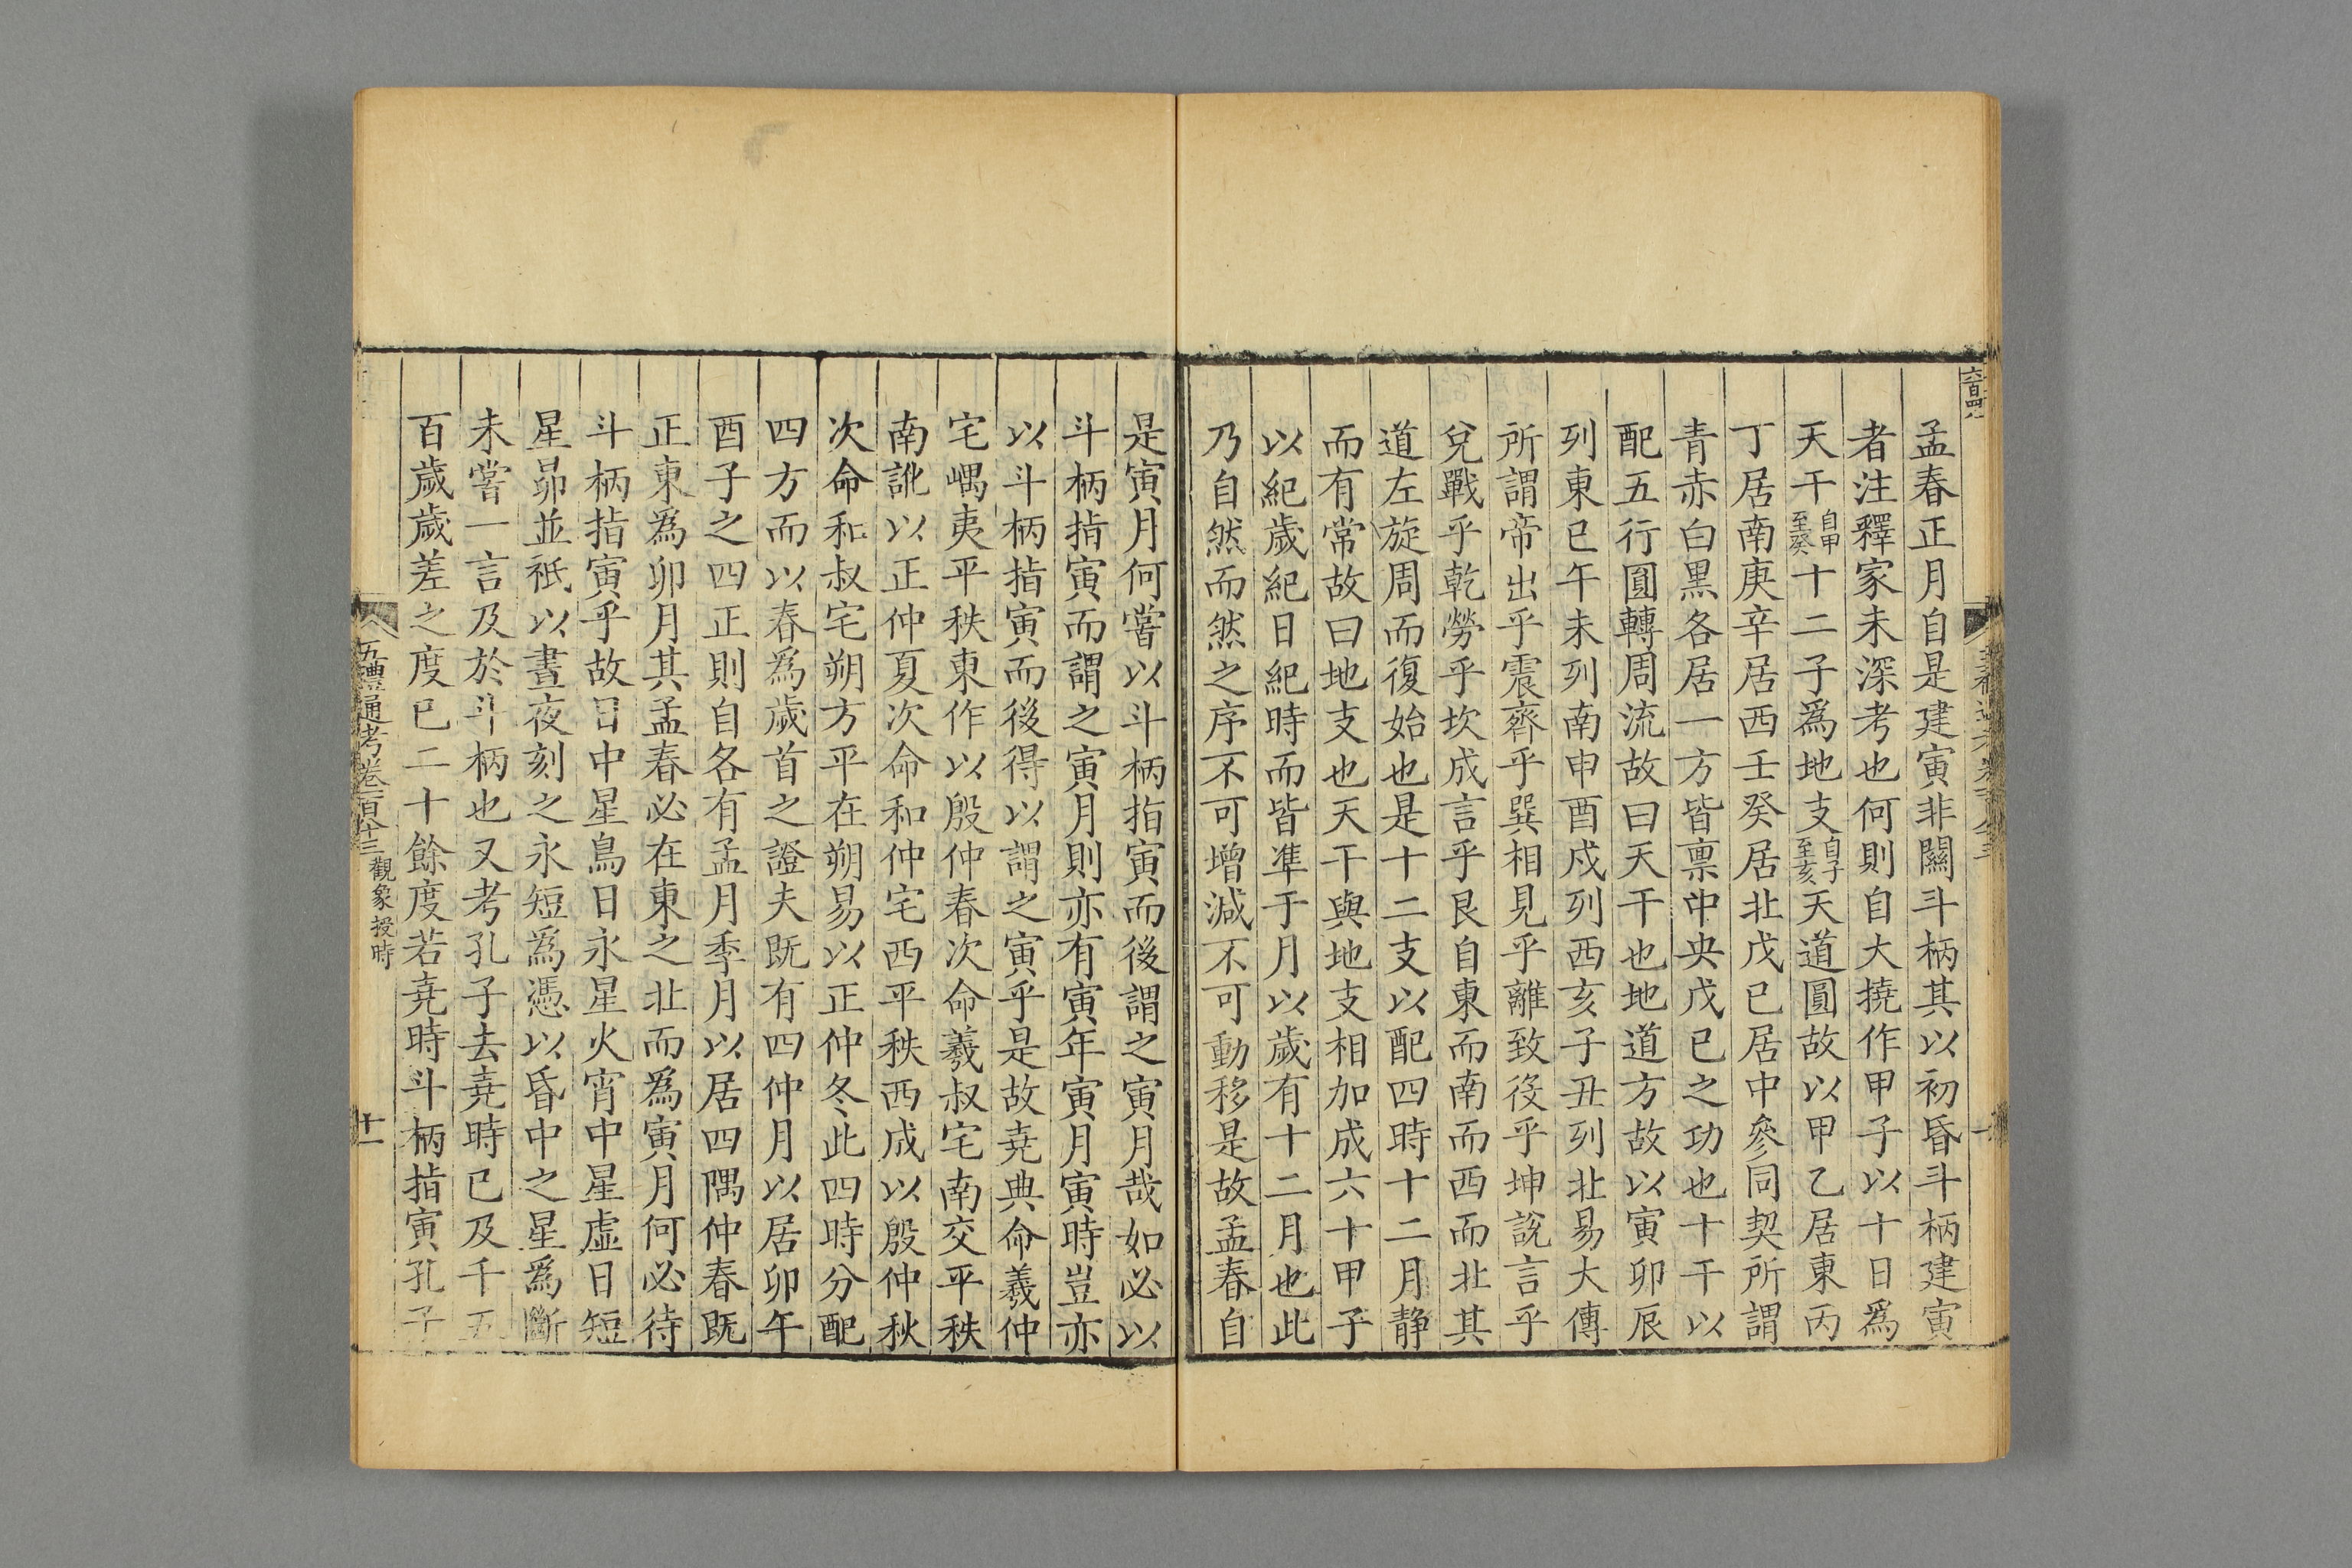 孟春正月自是建寅非關斗柄其以初昏斗柄建寅
者注釋家未深考也何則自大撓作甲子以十日爲
天干自甲至癸十二子爲地支自子至亥天道圓故以甲乙居東丙
丁居南庚辛居西壬癸居北戊已居中參同契所謂
青赤白黑各居一方皆禀中央戊已之功也十干以
配五行圓轉周流故曰天干也地道方故以寅卯辰
列東巳午未列南申酉戍列西亥子丑列北易大傳
所謂帝出乎震齊乎巽相見乎離致役乎坤說言乎
兌戰乎乾勞乎坎成言乎艮自東而南而西而北其
道左旋周而復始也是十二支以配四時十二月静
而有常故曰地支也天干與地支相加成六十甲子
以紀歲紀日紀時而皆準于月以歲有十二月也此
乃自然而然之序不可增減不可動移是故孟春自
是寅月何嘗以斗柄指寅而後謂之寅月哉如必以
斗柄指寅而謂之寅月則亦有寅年寅月寅時豈亦
以斗柄指寅而後得以謂之寅乎是故堯典命羲仲
宅嵎夷平秩東作以殷仲春次命羲叔宅南交平秩
南訛以正仲夏次命和仲宅西平秩西成以殷仲秋
次命和叔宅朔方平在朔易以正仲冬此四時分配
四方而以春爲歲首之證夫既有四仲月以居卯午
酉子之四正則自各有孟月季月以居四隅仲春既
正東爲卯月其孟春必在東之北而爲寅月何必待
斗柄指寅乎故日中星鳥日永星火宵中星虛日短
星昴並祇以晝夜刻之永短爲憑以昏中之星爲斷
未嘗一言及於斗柄也又考孔子去堯時已及千五
百歲歲差之度已二十餘度若堯時斗柄指寅孔子
五禮通考卷一百八十三 觀象授時
十一